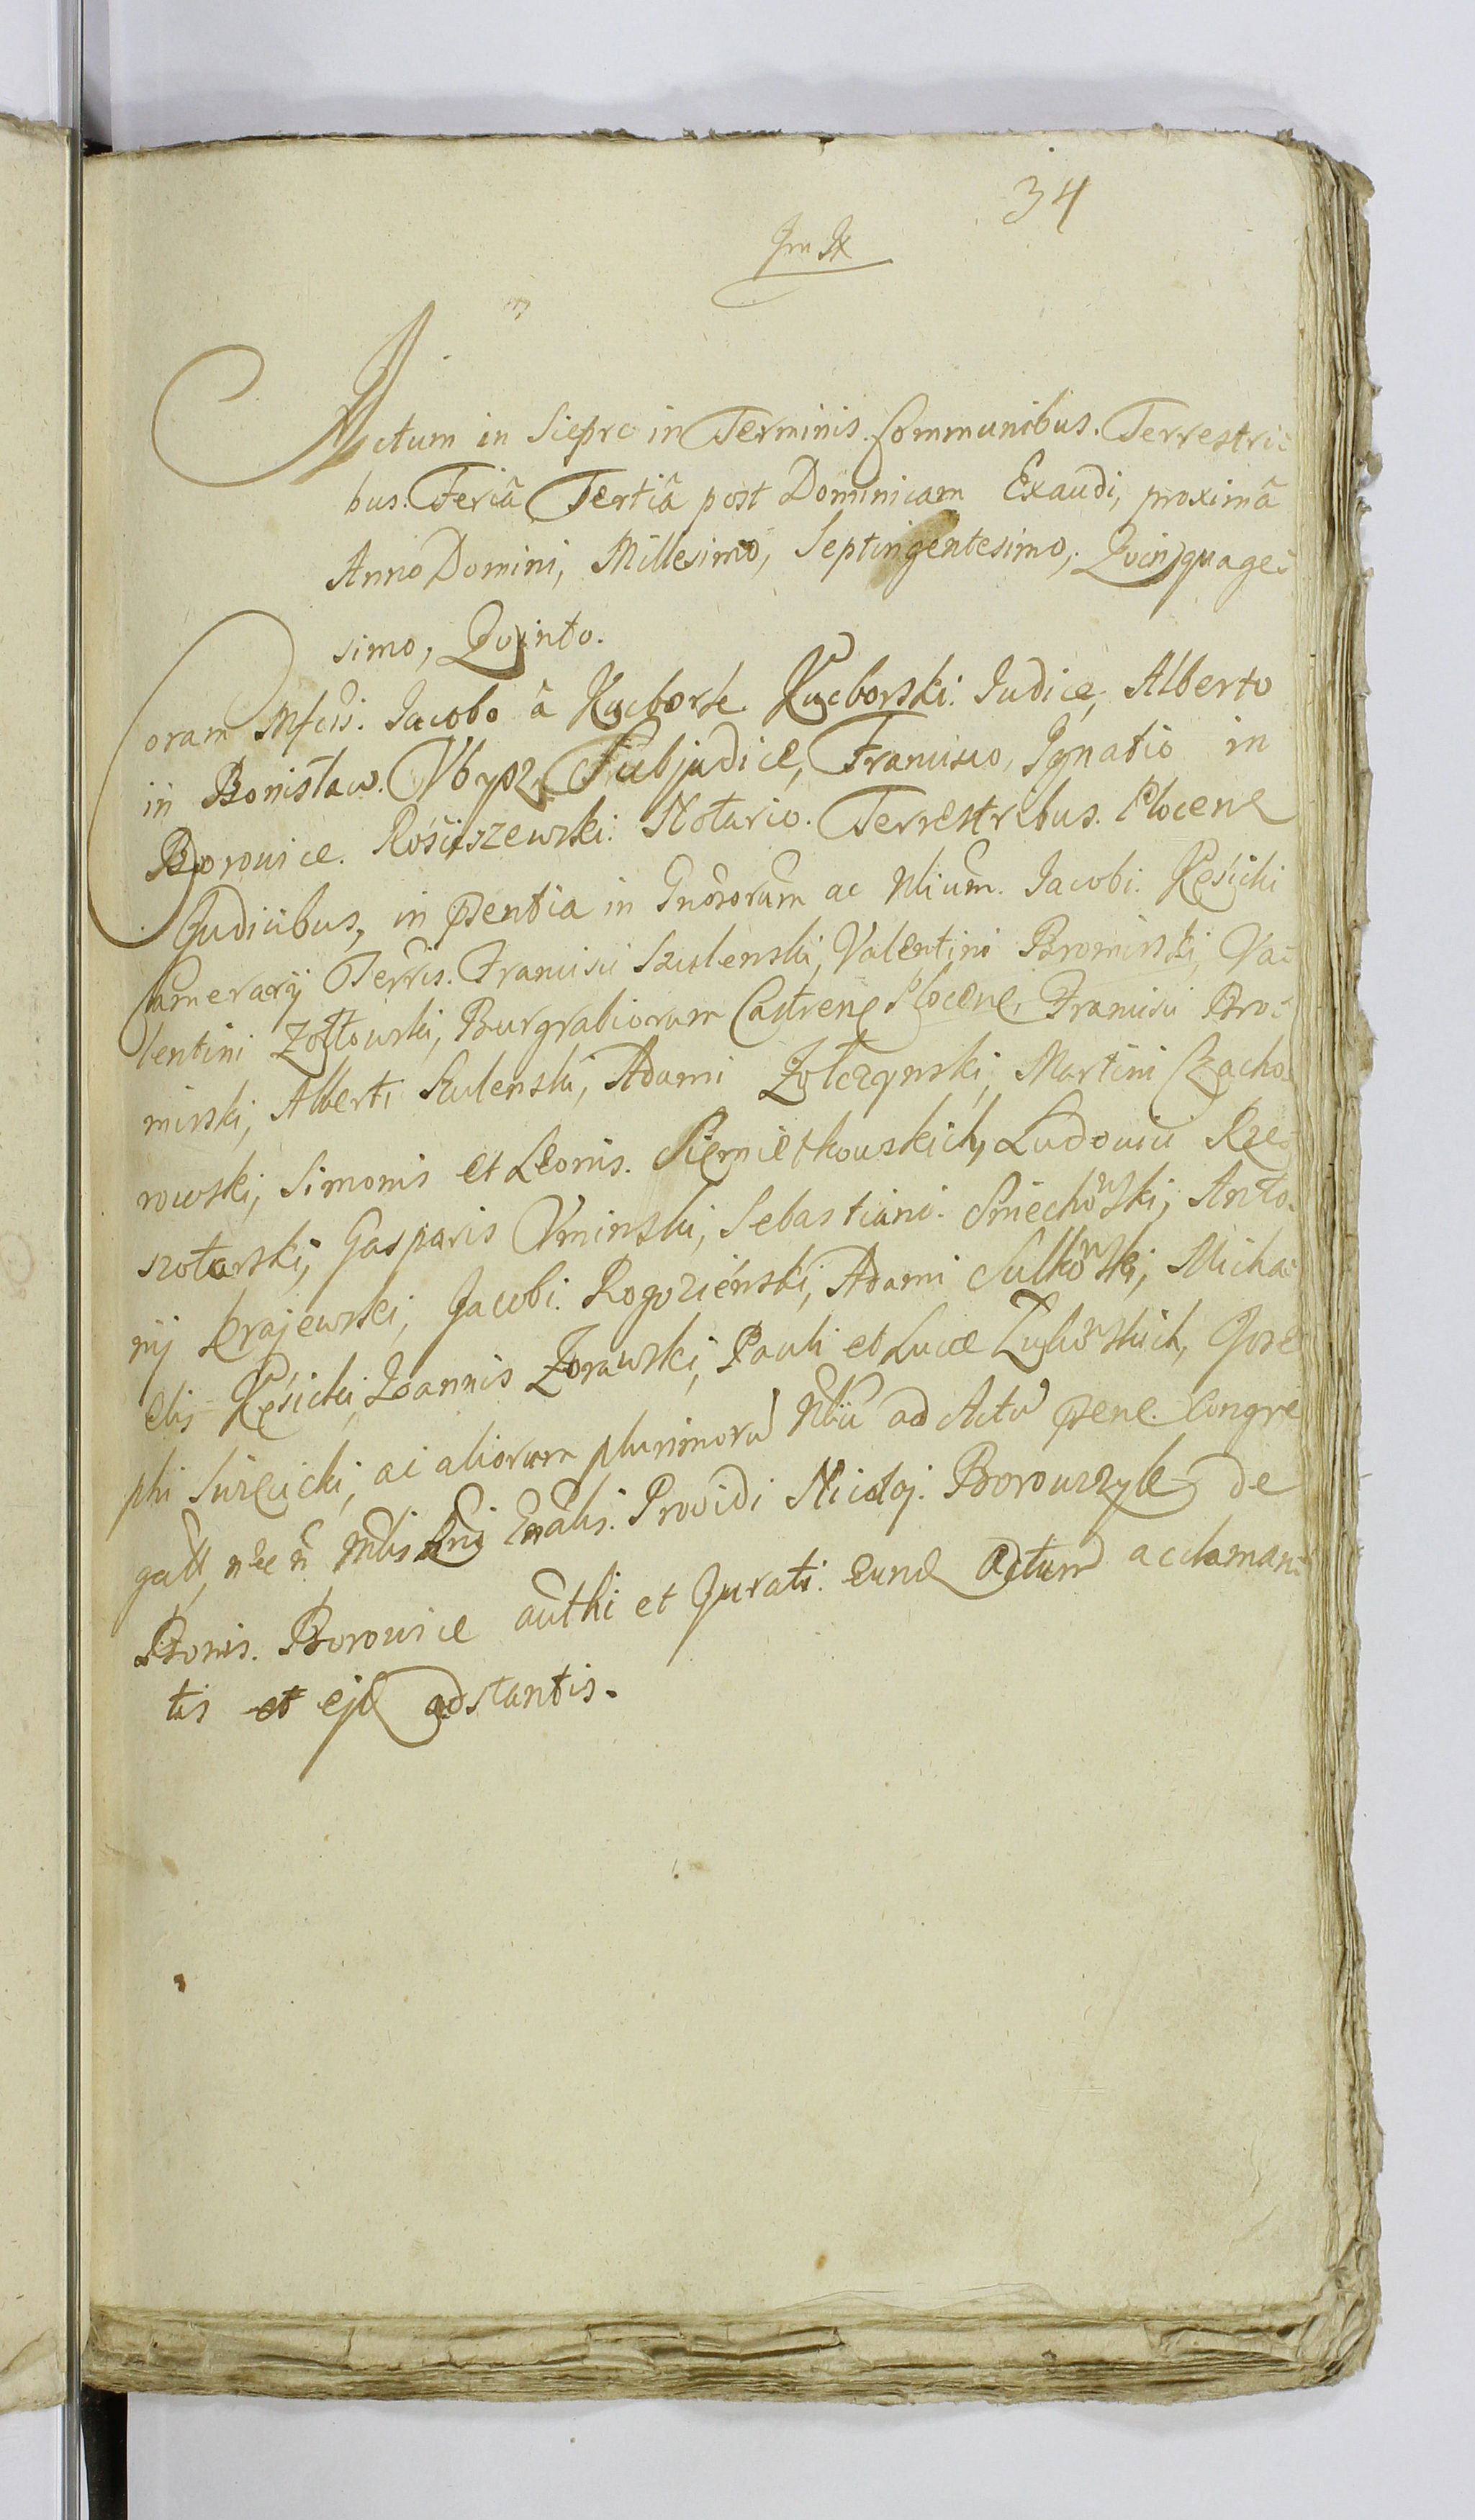 34
Actum in Sieprc in Terminis. Communibus. Terrestri-
bus. Feriâ Tertiâ post Dominicam Exaudi, proximâ
Anno Domini, Millesimo, Septingentesimo, Quinquage-
simo, Quinto.
Coram Mfcis. Jacobo â Kucbork Kucborski. Judice, Alberto
in Bonisław. Vbysz, Subjudice, Francisco, Ignatio in
Borowice. Rościszewski. Notario. Terrestribus. Plocene
Judicibus, in pentia in Gnosorum ac Nlium. Jacobi. Kęsicki
Camerarij Terris. Francisci Szulenski, Valentini Bromirski, Va-
lentini Zołtowski, Burgrabiorum Castrene Plocene, Francisci Bro-
mirski, Alberti Szulenski, Adami Zołczynski, Martini Czacho-
rowski, Simonis et Leonis. Siemiętkowskich, Ludovici Rze-
szotarski, Gasparis Vminski, Sebastiani. Smiechowski, Anto-
nij Krajewski, Jacobi. Rogozienski, Adami Sulkowski, Micha-
elis Kęsicki, Joannis Zorawski, Pauli et Lucæ Zukowskich, Jose
phi Suręcicki, ac aliorum plurimoru Nliu ad Actu pene. Congre
gatt, nec n Mlis Enalis. Providi Nicolaj. Borowczyk de
Bonis. Borowice authi et Jurati. eund Actum acclaman-
tis et ejd adstantis.